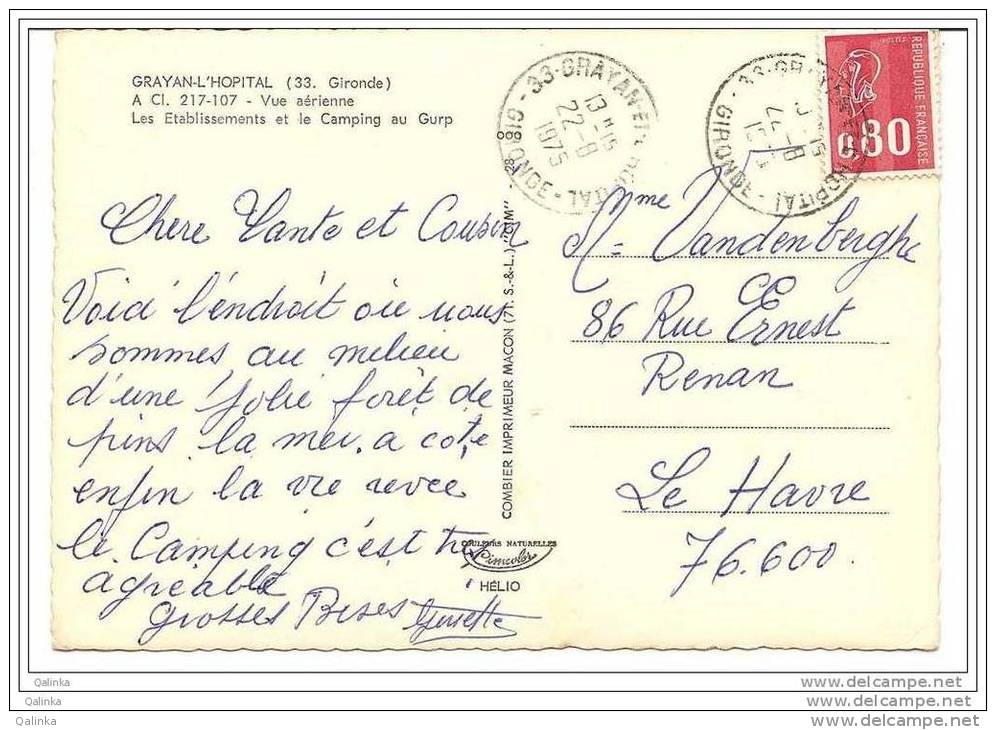 GRAYAN-L'HOPITAL (33. Gironde)
A Cl. 217-107 - Vue aérienne
Les Etablissements et le Camping au Gurp
33-GRAYAN-ET-L'HÔPITAL - GIRONDE -
13-15
22-8
1975
GIRONDE -
REPUBLIQUE FRANÇAISE
0.80
Chere Tante et Cousin
Voici l'éndroit oú nous
sommes au milieu
d'une jolie forêt de
pins. la mer. a coté
enfin la vie revée
le Camping c'est très
agreable
Grosses Bises Ginette
28 608
COMBIER IMPRIMEUR MACON (71. S.-&-L.) "CIM"
COULEURS NATURELLES
HÉLIO
Mme Vandenberghe
86 Rue Ernest
Renan
Le Havre
76.600.
Qalinka
Qalinka
Qalinka
www.delcampe.net
www.delcampe.net
www.delcampe.net